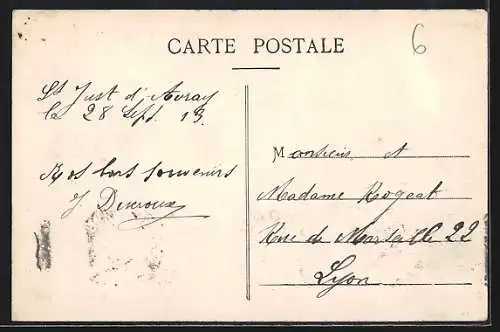 CARTE POSTALE
6
St Just d'Avray
le 28 Sept. 13.
Nos bons souvenirs
J. Ducroux
Monsieur et
Madame Rogeat
Rue de Marseille 22
Lyon